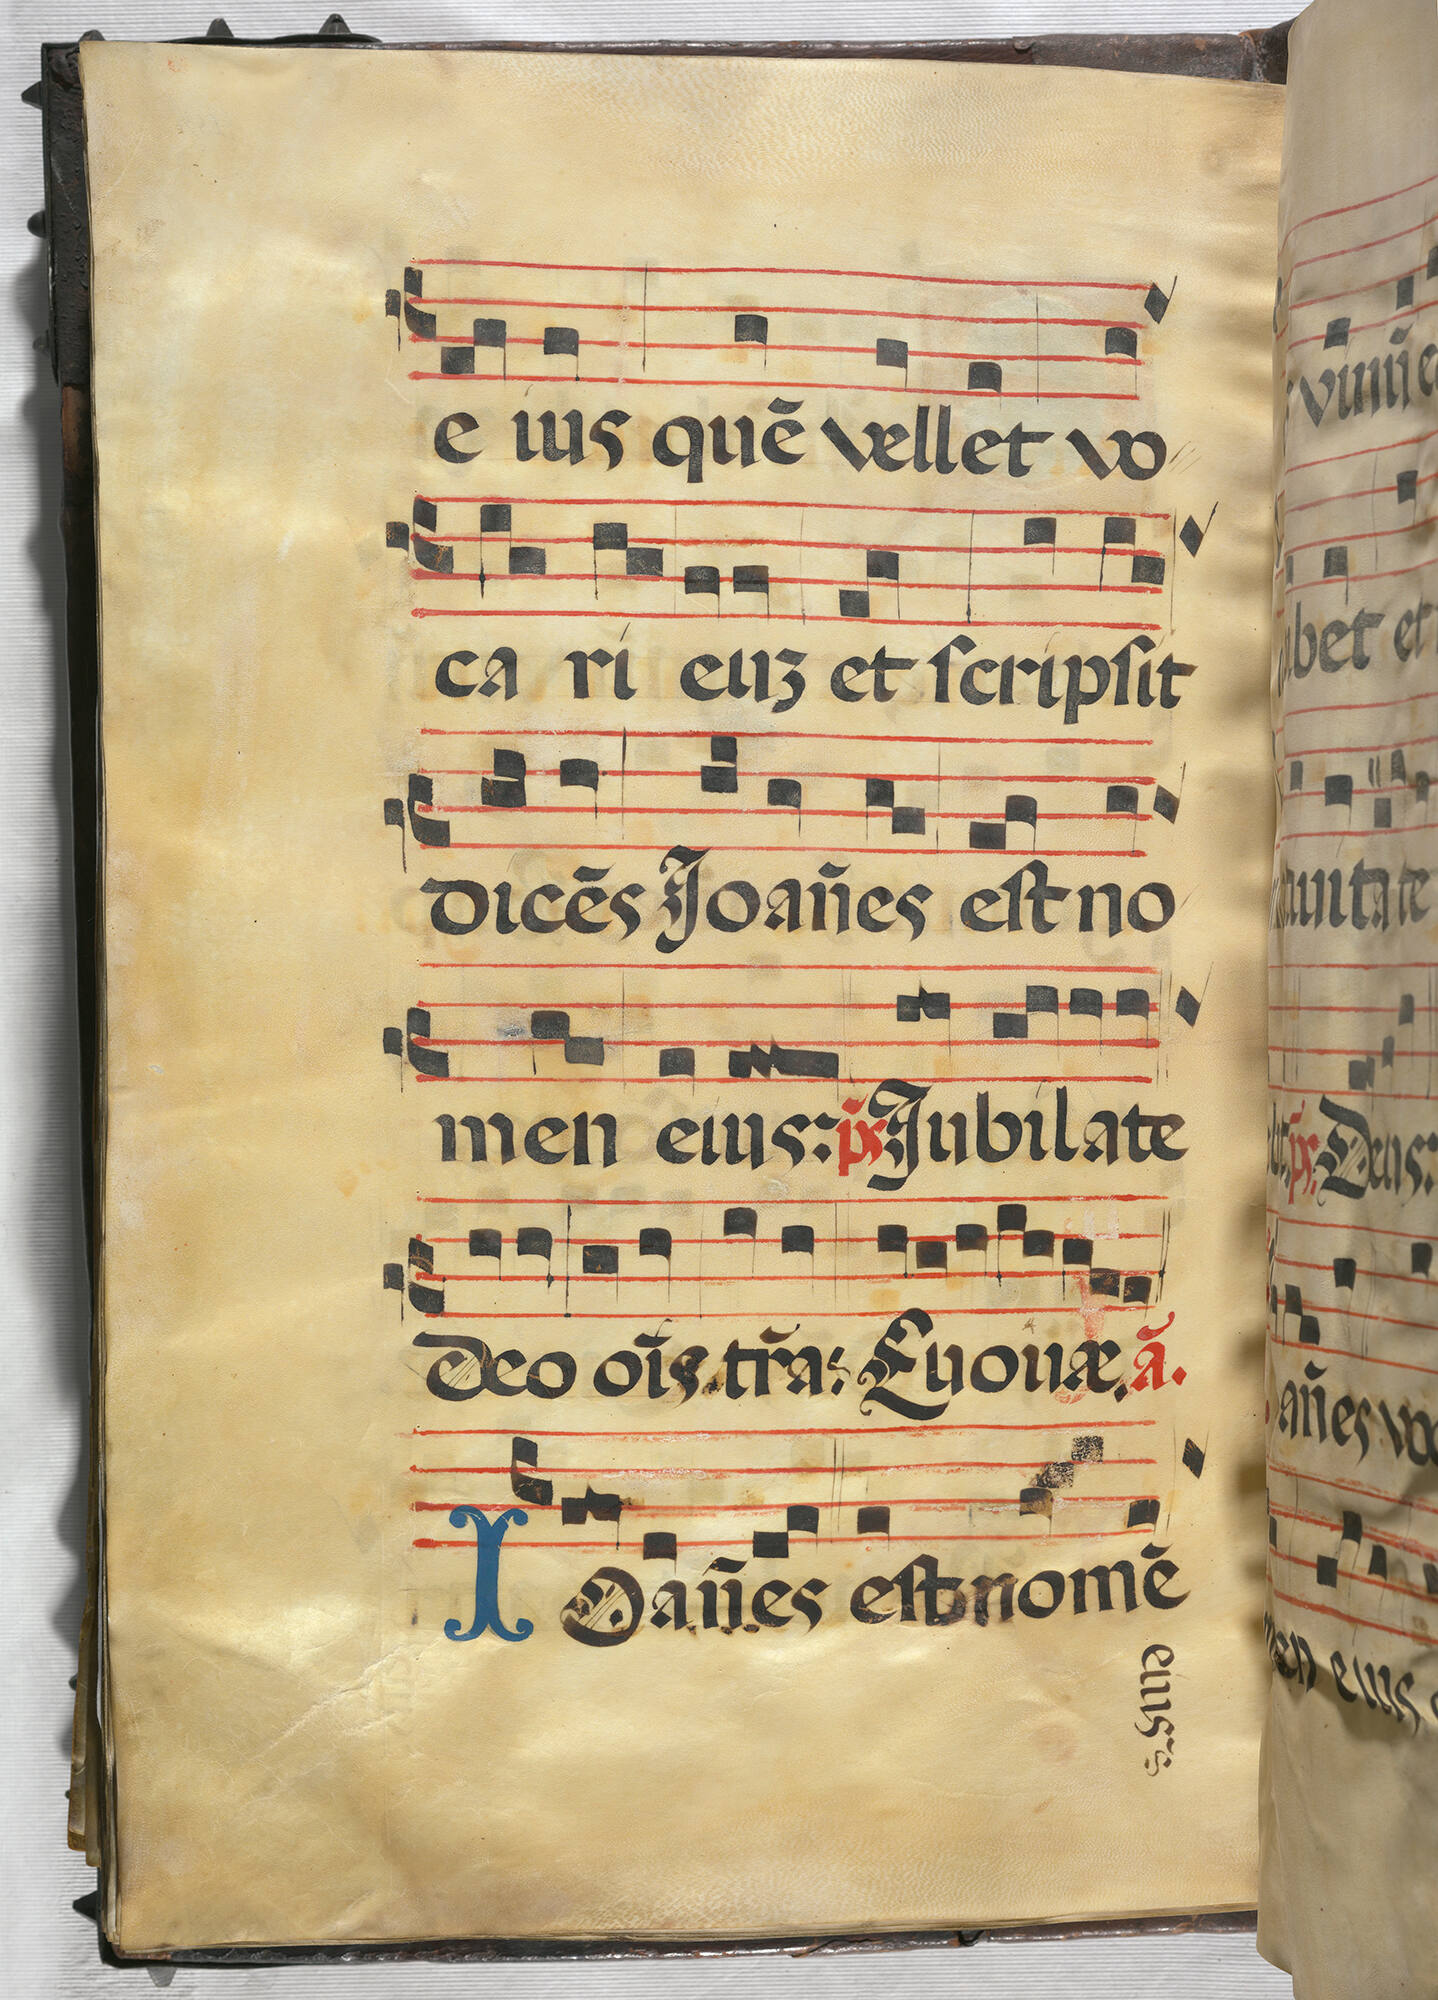 e ius quē vellet vo
ca ri euʒ et scripsit
dicēs Joān̄es est no
men eius: p̄s Jubilate
deo oīs tr̄a: Euouæ. ā.
IOan̄es est nomē
eius
vini
bet et
tiuitate
p̄s. Deus:
an̄es vo
men eius